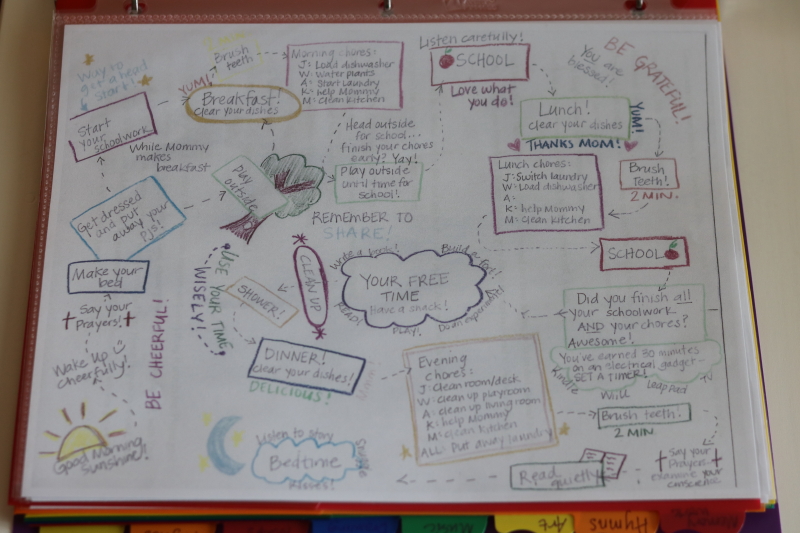 Good Morning
Sunshine!
Wake Up
Cheerfully!
Say your
Prayers!
Make your
bed
BE CHEERFUL!
Get dressed
and put
away your
PJs!
While Mommy
makes
breakfast
Start
your
schoolwork
Way to
get a head
start!
play
outside
YUM!
Breakfast!
clear your dishes
Brush
teeth
Morning chores:
J: Load dishwasher
W: Water plants
A: Start laundry
K: help Mommy
M: Clean kitchen
Head outside
for school...
finish your chores
early? Yay!
Play outside
until time for
school!
REMEMBER TO
SHARE!
Listen carefully!
SCHOOL
Love what
you do!
You are
blessed!
BE GRATEFUL!
Lunch!
clear your dishes
YUM!
THANKS MOM!
Brush
Teeth!
2 MIN.
Lunch chores:
J: Switch laundry
W: Load dishwasher
A:
K: help Mommy
M: Clean kitchen
SCHOOL
Did you finish all
your schoolwork
AND your chores?
Awesome!
You've earned 30 minutes
on an electrical gadget-
SET A TIMER!
Kindle
Wii U
Leap Pad
TV
YOUR FREE
TIME
Have a snack!
READ!
Play!
CLEAN UP
USE YOUR TIME
WISELY!
SHOWER!
DINNER!
clear your dishes!
DELICIOUS!
Evening
chores:
J: clean room/desk
W: clean up playroom
A: clean up living room
K: help Mommy
M: Clean kitchen
ALL: Put away laundry
Brush teeth!
2 MIN.
Say your
Prayers-
examine your
conscience
Read
quietly
Listen to story
Bedtime
Snuggle
Kisses!
Music
Art
Hymns